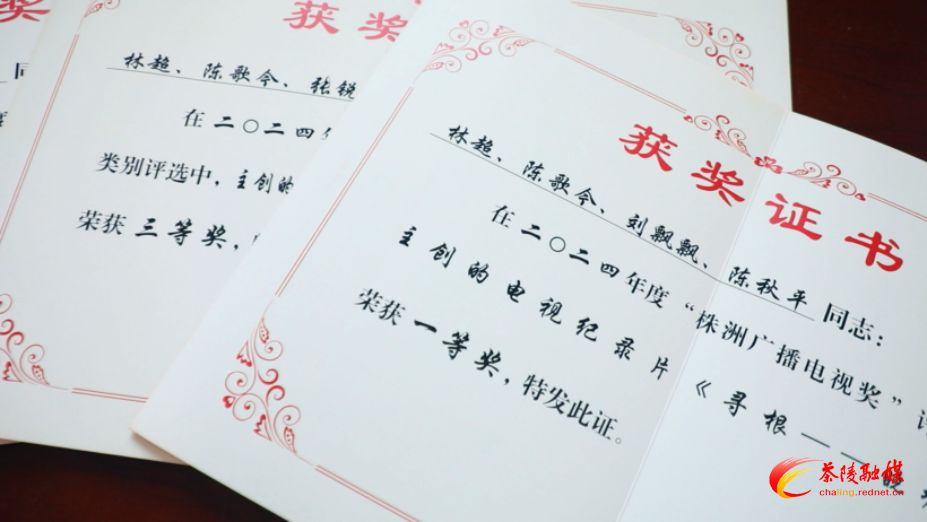 奖
同
获奖
林超、陈歌今、张锐
在二〇二四年
类别评选中，主创的
荣获三等奖，
获奖证书
林超、陈歌今、刘飘飘、陈秋平同志：
在二〇二四年度“株洲广播电视奖”评
主创的电视纪录片《寻根——
荣获一等奖，特发此证。
茶陵融媒
chaling.rednet.cn